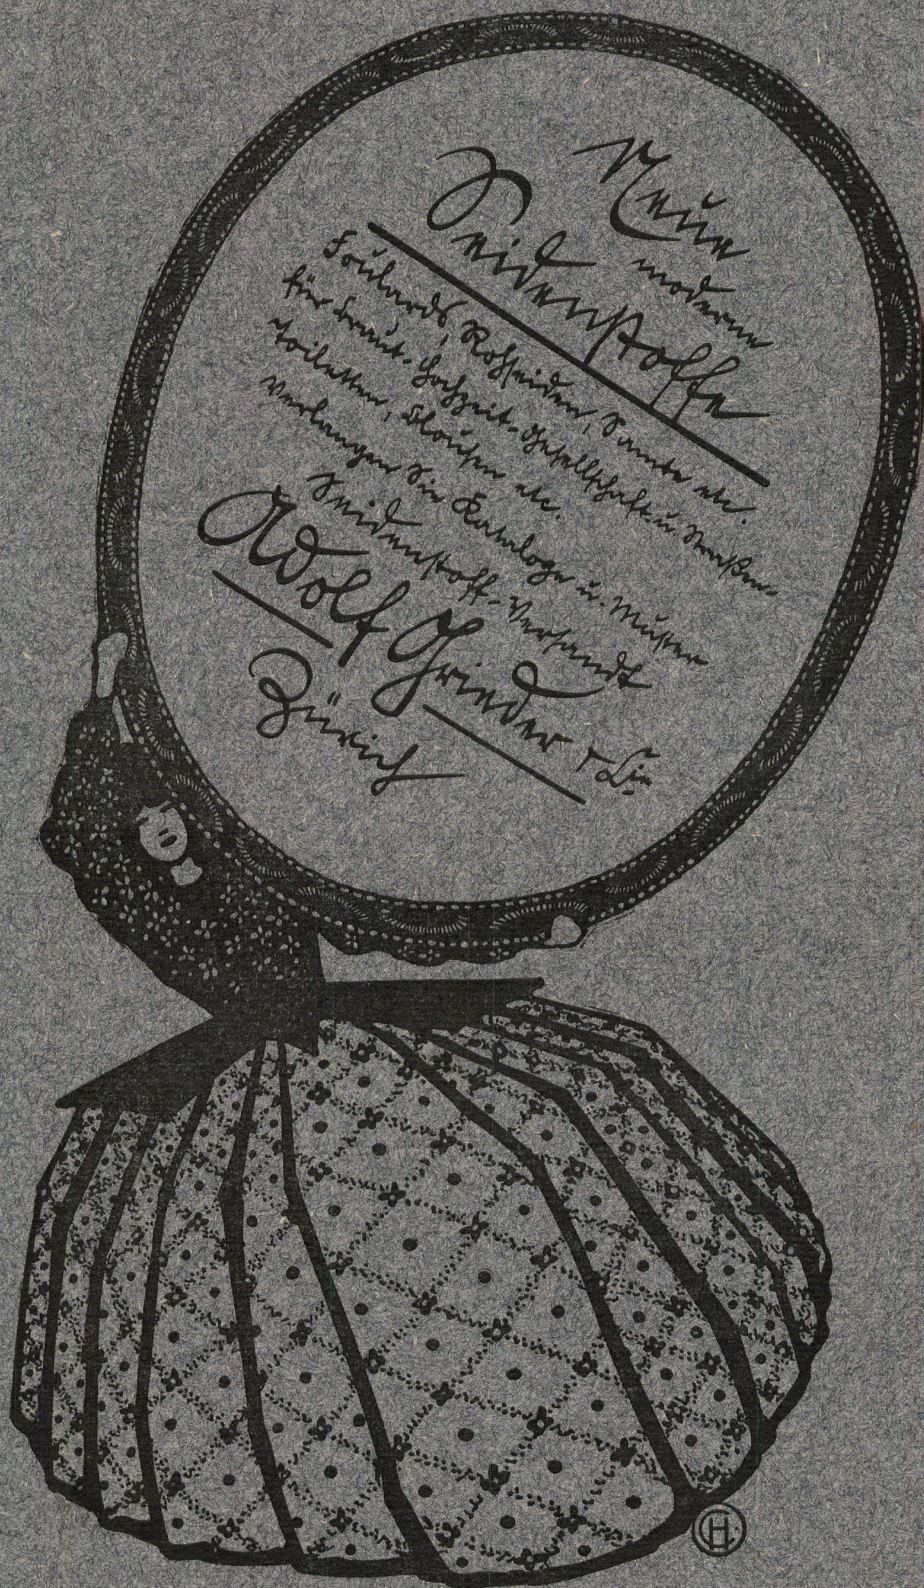 Neue
moderne
Seidenstoffe
Foulards, Rohseiden, Samte etc.
für Braut-Hochzeit-Gesellschaft u. Straßen-
toiletten, Blousen etc.
Verlangen Sie Kataloge u. Muster
Seidenstoff-Versandt
Adolf Grieder & Cie
Zürich
H.